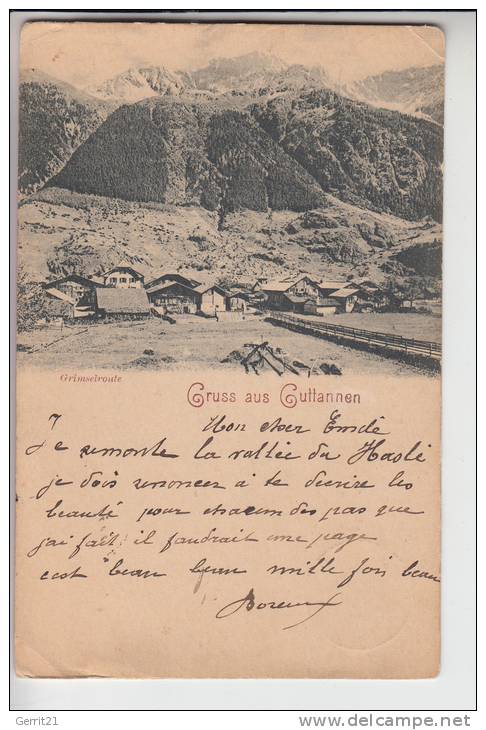 Grimselroute
Gruss aus Guttannen
Mon cher Emile
Je remonte la vallée du Hasli
je dois renoncer à te decrire les
beauté pour chacun des pas que
j'ai fait il faudrait une page
c'est beau beau mille fois beau
Gerrit21